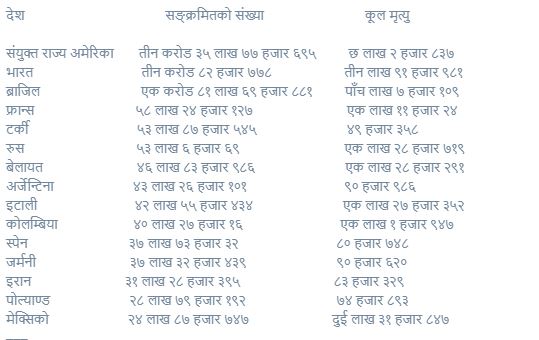 देश सङ्क्रमितको संख्या कूल मृत्यु
संयुक्त राज्य अमेरिका तीन करोड ३५ लाख ७७ हजार ६९५ छ लाख २ हजार ८३७
भारत तीन करोड ८२ हजार ७७८ तीन लाख ९१ हजार ९८१
ब्राजिल एक करोड ८१ लाख ६९ हजार ८८१ पाँच लाख ७ हजार १०९
फ्रान्स ५८ लाख २४ हजार १२७ एक लाख ११ हजार २४
टर्की ५३ लाख ८७ हजार ५४५ ४९ हजार ३५८
रुस ५३ लाख ६ हजार ६९ एक लाख २८ हजार ७१९
बेलायत ४६ लाख ८३ हजार ९८६ एक लाख २८ हजार २९१
अर्जेन्टिना ४३ लाख २६ हजार १०१ ९० हजार ९८६
इटाली ४२ लाख ५५ हजार ४३४ एक लाख २७ हजार ३५२
कोलम्बिया ४० लाख २७ हजार १६ एक लाख १ हजार ९४७
स्पेन ३७ लाख ७३ हजार ३२ ८० हजार ७४८
जर्मनी ३७ लाख ३२ हजार ४३९ ९० हजार ६२०
इरान ३१ लाख २८ हजार ३९५ ८३ हजार ३२९
पोल्याण्ड २८ लाख ७९ हजार १९२ ७४ हजार ८९३
मेक्सिको २४ लाख ८७ हजार ७४७ दुई लाख ३१ हजार ८४७